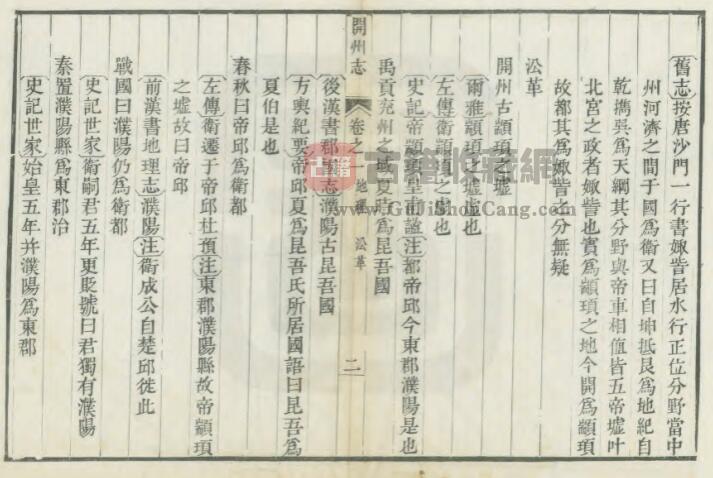 舊志按唐沙門一行書娵訾居水行正位分野當中
州河濟之間于國爲衛又曰自坤抵艮爲地紀自
乾擕巽爲天綱其分野與帝車相值皆五帝墟叶
北宮之政者娵訾也實爲顓頊之地今開爲顓頊
故都其爲娵訾之分無疑
沿革
開州古顓頊之墟
爾雅顓頊之墟虛也
左傳衛顓頊之虛也
史記帝顓頊皇甫謐注都帝邱今東郡濮陽是也
禹貢兖州之域夏時爲昆吾國
開州志 卷之一 地理 沿革 二
後漢書郡國志濮陽古昆吾國
方輿紀要帝邱夏爲昆吾氏所居國語曰昆吾爲
夏伯是也
春秋曰帝邱爲衛都
左傳衛遷于帝邱杜預注東郡濮陽縣故帝顓頊
之墟故曰帝邱
前漢書地理志濮陽注衛成公自楚邱徙此
戰國曰濮陽仍爲衛都
史記世家衛嗣君五年更貶號曰君獨有濮陽
秦置濮陽縣爲東郡治
史記世家始皇五年并濮陽爲東郡
古籍 古籍收藏網
www.GuJiShouCang.com